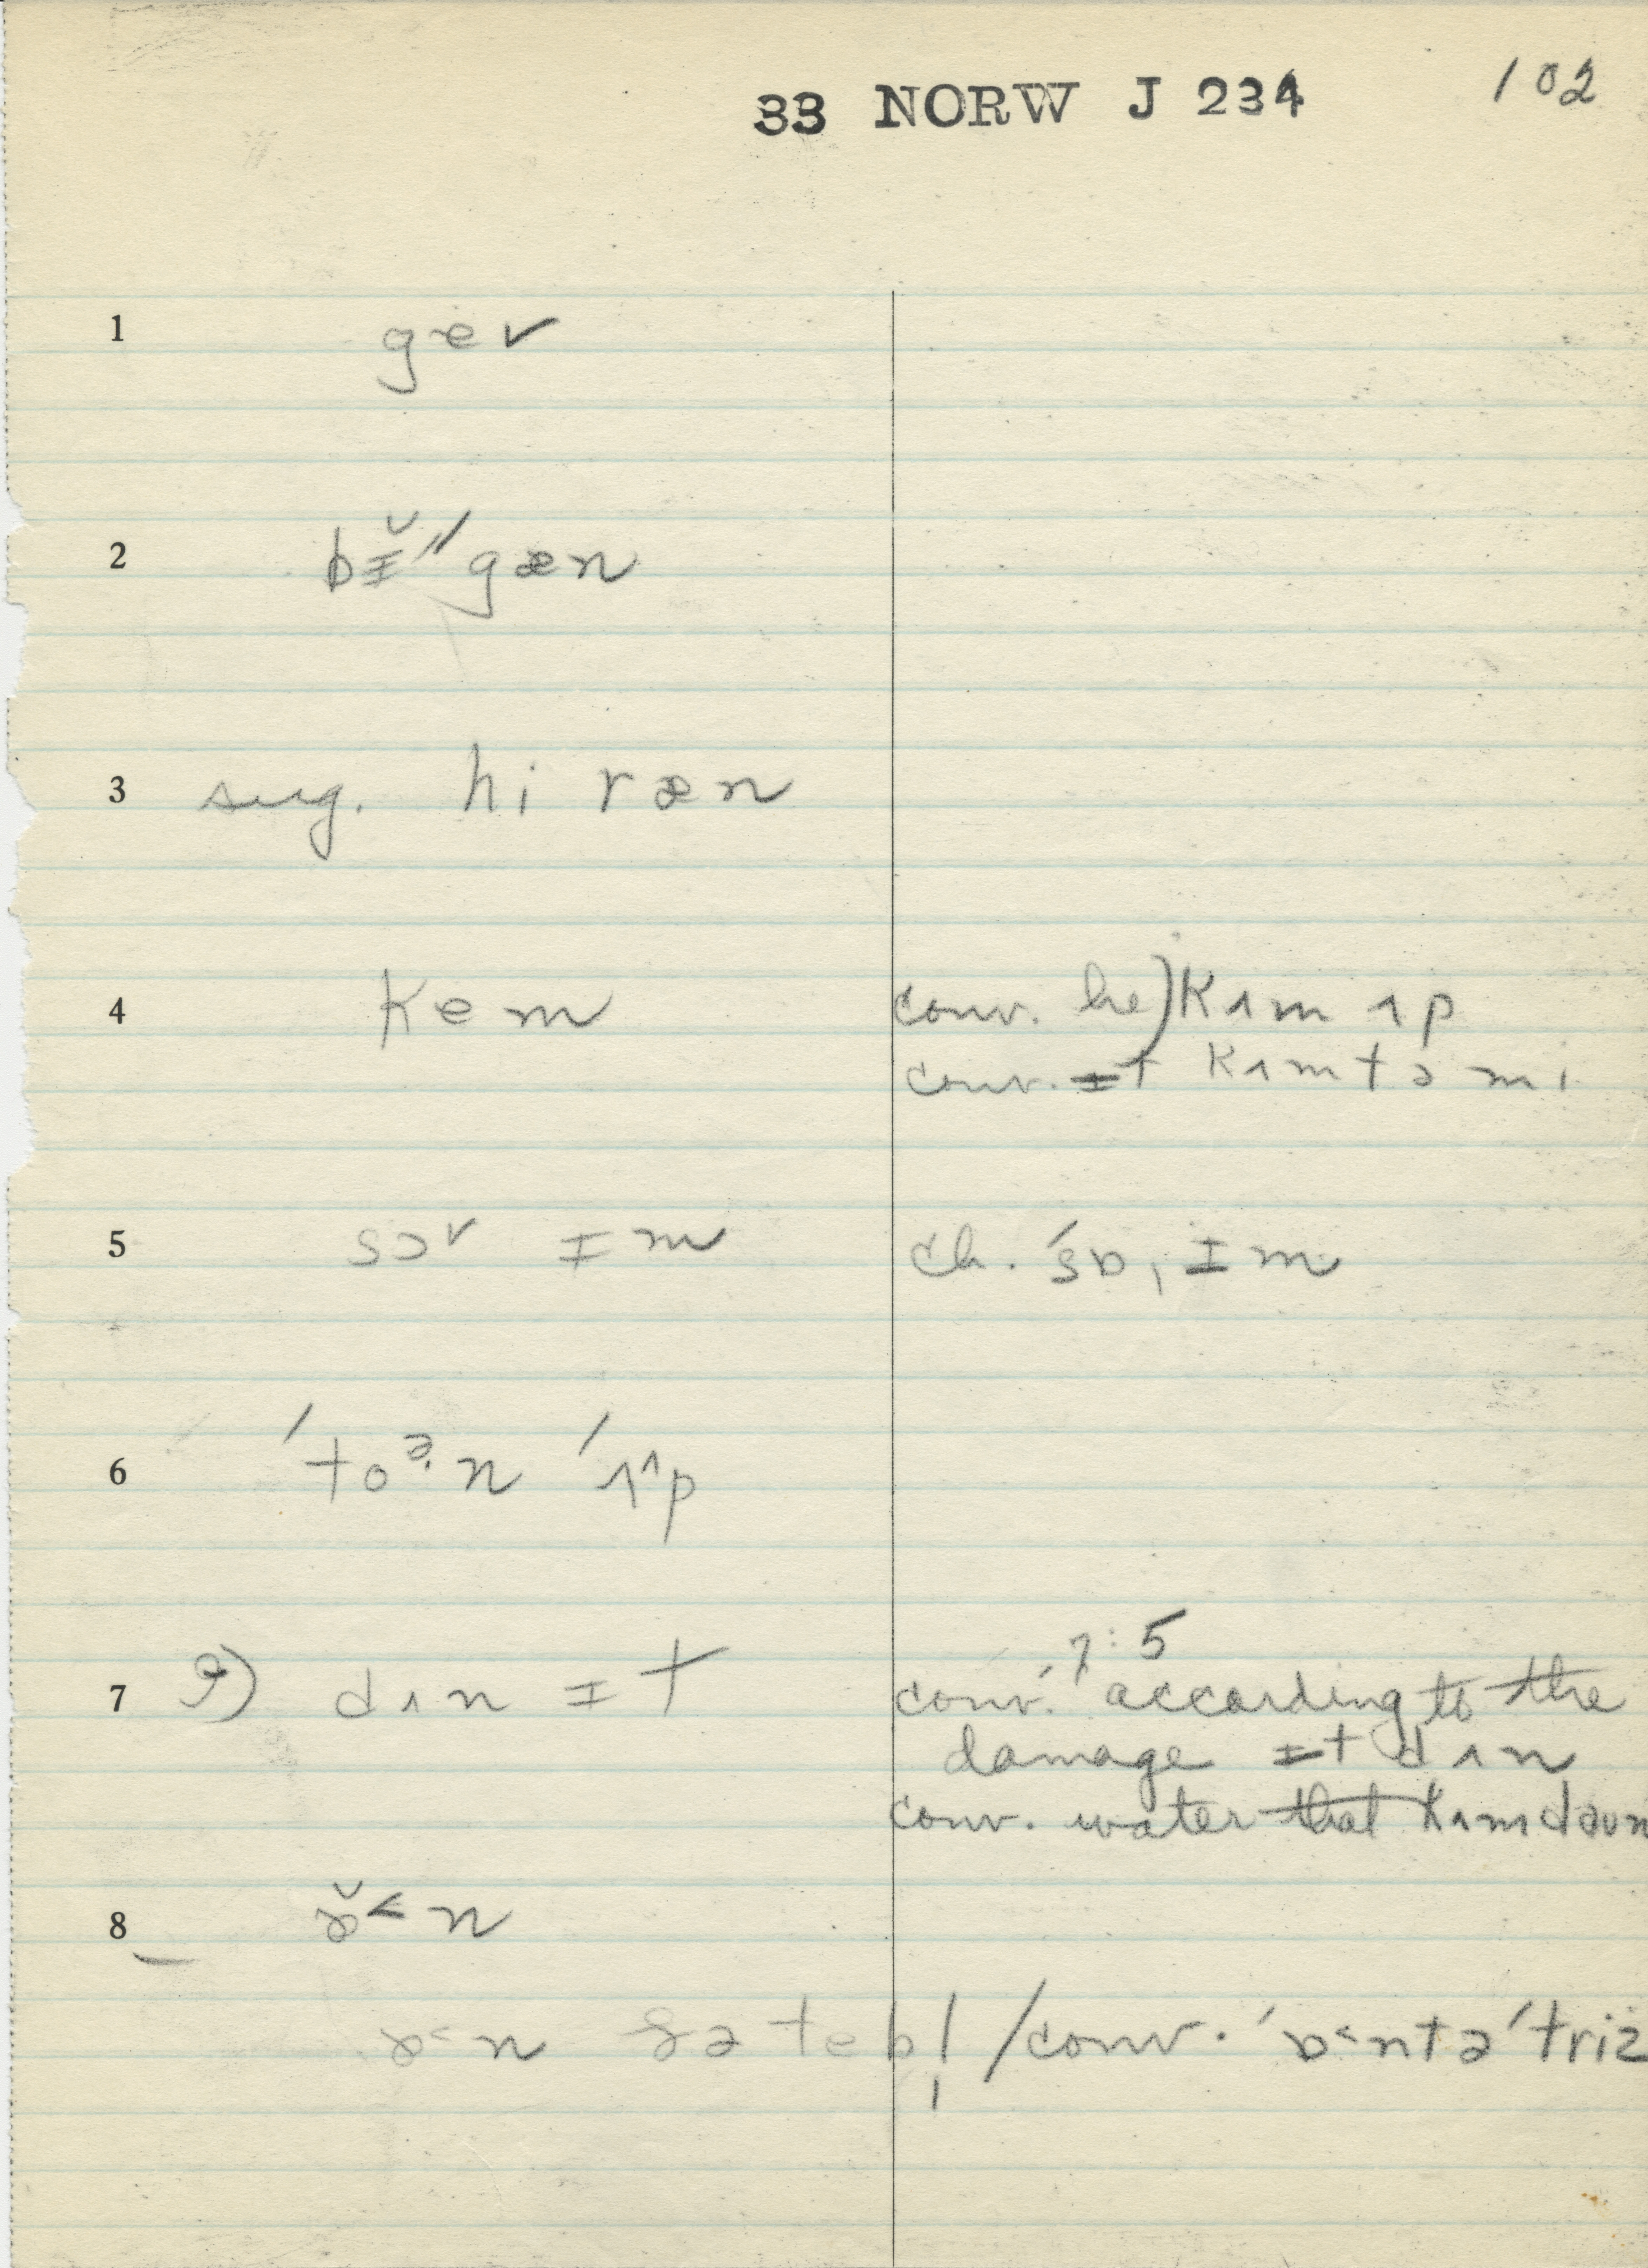 33 NORW J 234 102
1 gev
2 bɪ̆″gæn
3 sug. hi ræn
4 kem conv. he) kʌm ʌp
conv. ɪt kʌm tə mi
5 sɔᵛ ɪm ch. ′sɒˌɪm
6 ′toᵊ·n ′ʌ^p
7 9) dʌn ɪt 7:5
conv. according to the
damage ɪt dʌn
conv. water that kʌm daun
8 ɒ̆˂n
ɒ˂n ðə tebl̩ / conv. ′ɒ˂ntə′triz